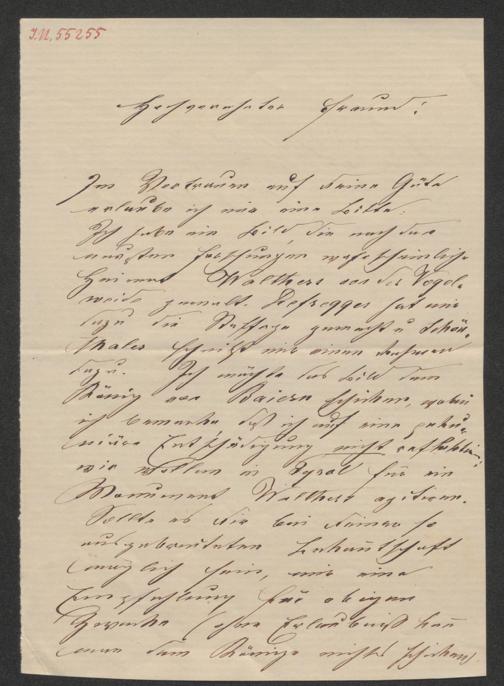 I.N. 55255
Hochverehrter Freund!
Im Vertrauen auf Deine Güte
erlaube ich mir eine Bitte.
Ich habe ein Bild, die nach den
neusten Forschungen wahrscheinliche
Heimat Walthers von der Vogel-
weide gemalt. Defregger hat mir
dazu die Staffage gemacht u Schön-
thaler schnitzt mir einen Rahmen
dazu. Ich möchte das Bild dem
König von Baiern schicken, wobei
ich bemerke daß ich auf eine peku-
niäre Entschädigung nicht reflektire;
wir wollen in Tyrol für ein
Monument Walthers agitiren.
Sollte es Dir bei Deiner so
ausgebreiteten Bekantschaft
möglich sein, mir eine
Empfehlung für obigen
Zwecke (ohne Erlaubniß kan
man dem Könige nichts schicken)